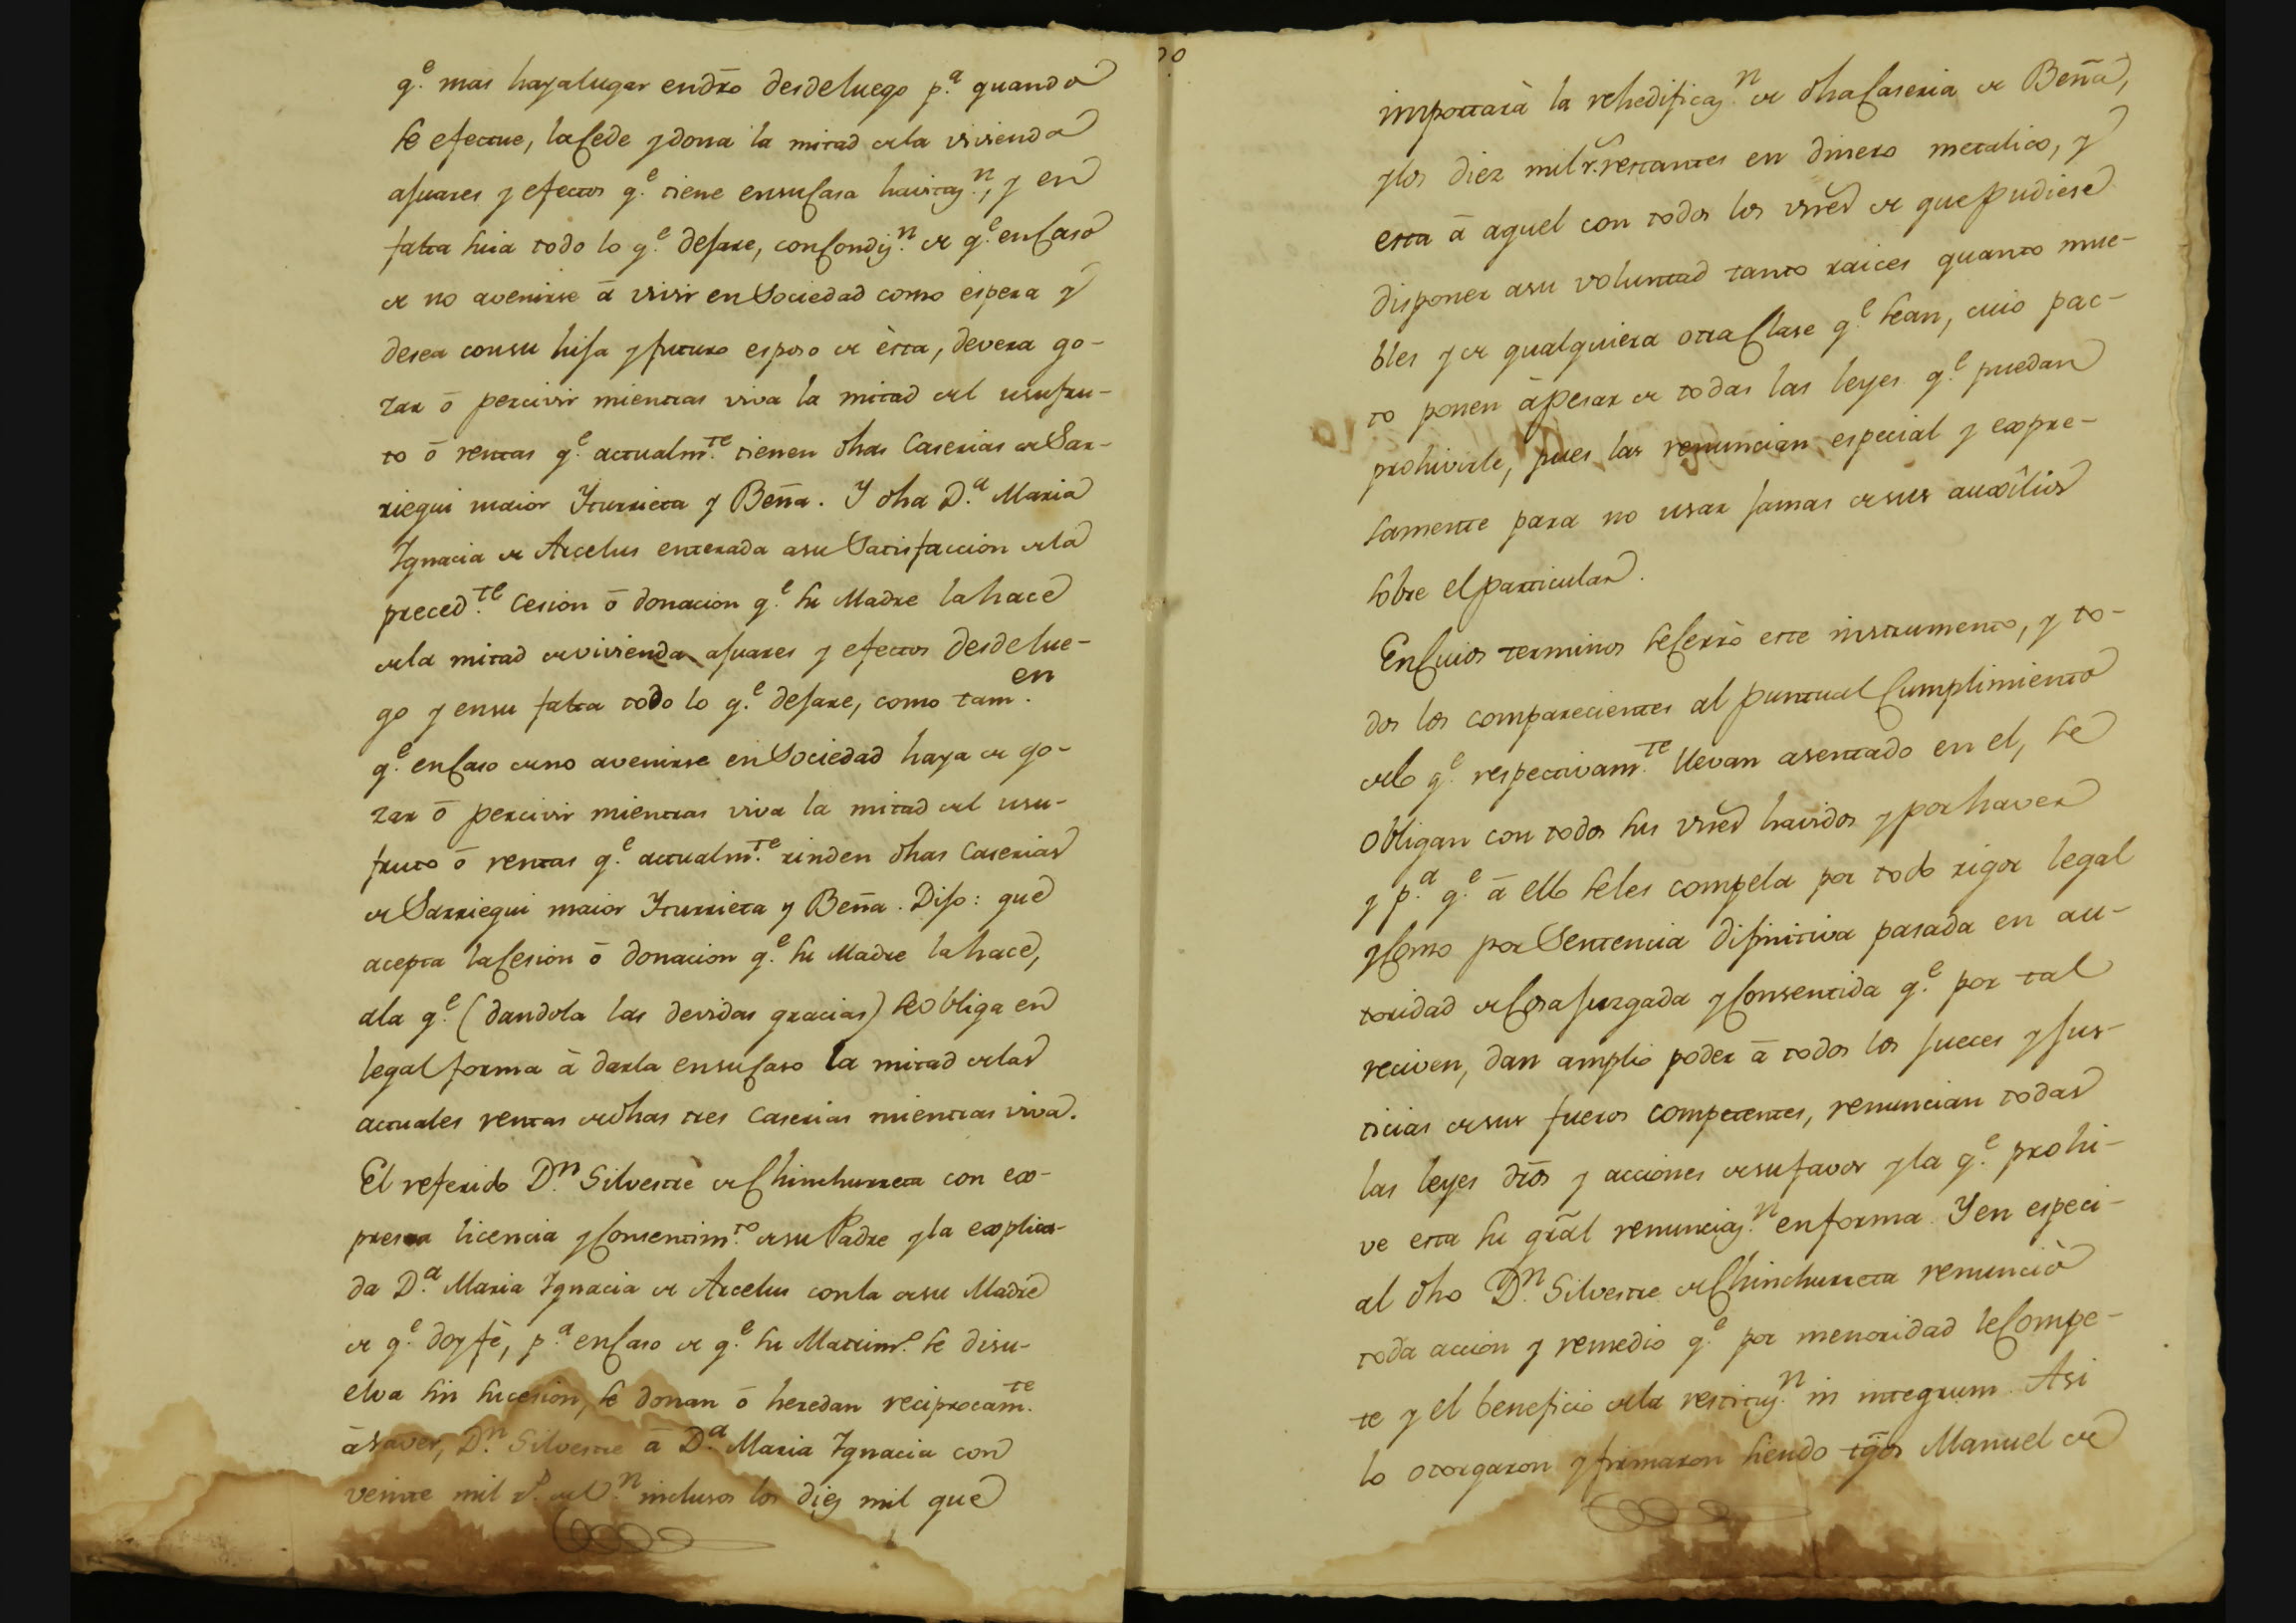 q.e mas hayalugar endr̃o desdeluego p.a quando
se efectue, lacede ydona la mitad dela vivienda
ajuares y efectos q.e tiene ensucasa havitaz.n, y en
falta suia todo lo q.e dejare, concondiz.n de q.e encaso
de no avenirse â vivir en Sociedad como espera y
desea consu hija yfuturo esposo de èsta, devera go-
zar ô percivir mientras viva la mitad del usufru-
to ô rentas q.e actualm.te tienen dhas Caserias de Sar-
riegui maior Yturrieta y Beña. Y dha D.a Maria
Ygnacia de Arcelus enterada asu Satisfaccion dela
preced.te Cesion ô donacion q.e su Madre lahace
dela mitad devivienda ajuares y efectos desdelue-
go y ensu falta todo lo q.e dejare, como tam.en
q.e encaso deno avenirse en Sociedad haya de go-
zar ô percivir mientras viva la mitad del usu-
fruto ô rentas q.e actualm.te rinden dhas Caserias
de Sarriegui maior Yturrieta y Beña. Dijo: que
acepta lacesion ô donacion q.e su Madre lahace,
ala q.e (dandola las devidas gracias) seobliga en
legal forma â darla ensucaso la mitad delas
actuales rentas dedhas tres Caserias mientras viva.
El referido D.n Silvestre de Chinchurreta con ex-
presa licencia yconsentim.to desu Padre yla explica-
da D.a Maria Ygnacia de Arcelus conla desu Madre
de q.e doyfè, p.a encaso de q.e su Matrim.o se disu-
elva sin sucesion, se donan ô heredan reciprocam.te
âsaver, D.n Silvestre â D.a Maria Ygnacia con
veinte mil r.s de V.n inclusos los diez mil que
importarà la rehedificaz.n de dhaCaseria de Beña,
ylos diez mil r.s restantes en dinero metalico, y
esta â aquel con todos los vnes de que pudiese
disponer asu voluntad tanto raices quanto mue-
bles y de qualquiera otraClase q.e sean, cuio pac-
to ponen àpesar de todas las leyes q.e puedan
prohivirle, pues las renuncian especial y expre-
samente para no usar jamas desus auxîlios
sobre elparticular.
Encuios terminos secerrò este instrumento, y to-
dos los comparecientes al puntual Cumplimiento
delo q.e respectivam.te llevan asentado en el, se
obligan con todos sus vnes havidos yporhaver
y p.a q.e â ello seles compela por todo rigor legal
ycomo por Sentencia difinitiva pasada en au-
toridad deCosa juzgada yconsentida q.e por tal
reciven, dan amplio poder â todos los jueces yjus-
ticias desus fueros competentes, renuncian todas
las leyes dr̃os y acciones desufavor yla q.e prohi-
ve esta su gr̃al renunciaz.n enforma. Yen especi-
al dho D.n Silvestre deChinchurreta renunciò
toda accion y remedio q.e por menoridad leCompe-
te y el beneficio dela restituz.n in integrum. Asi
lo otorgaron yfirmaron siendo tgõs Manuel de